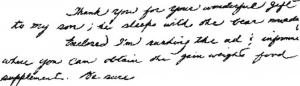 Thank you for your wonderful gift
to my son; he sleeps with the bear
Enclosed I'm sending the ad &
where you can obtain the gain weight food
supplement. Be sure